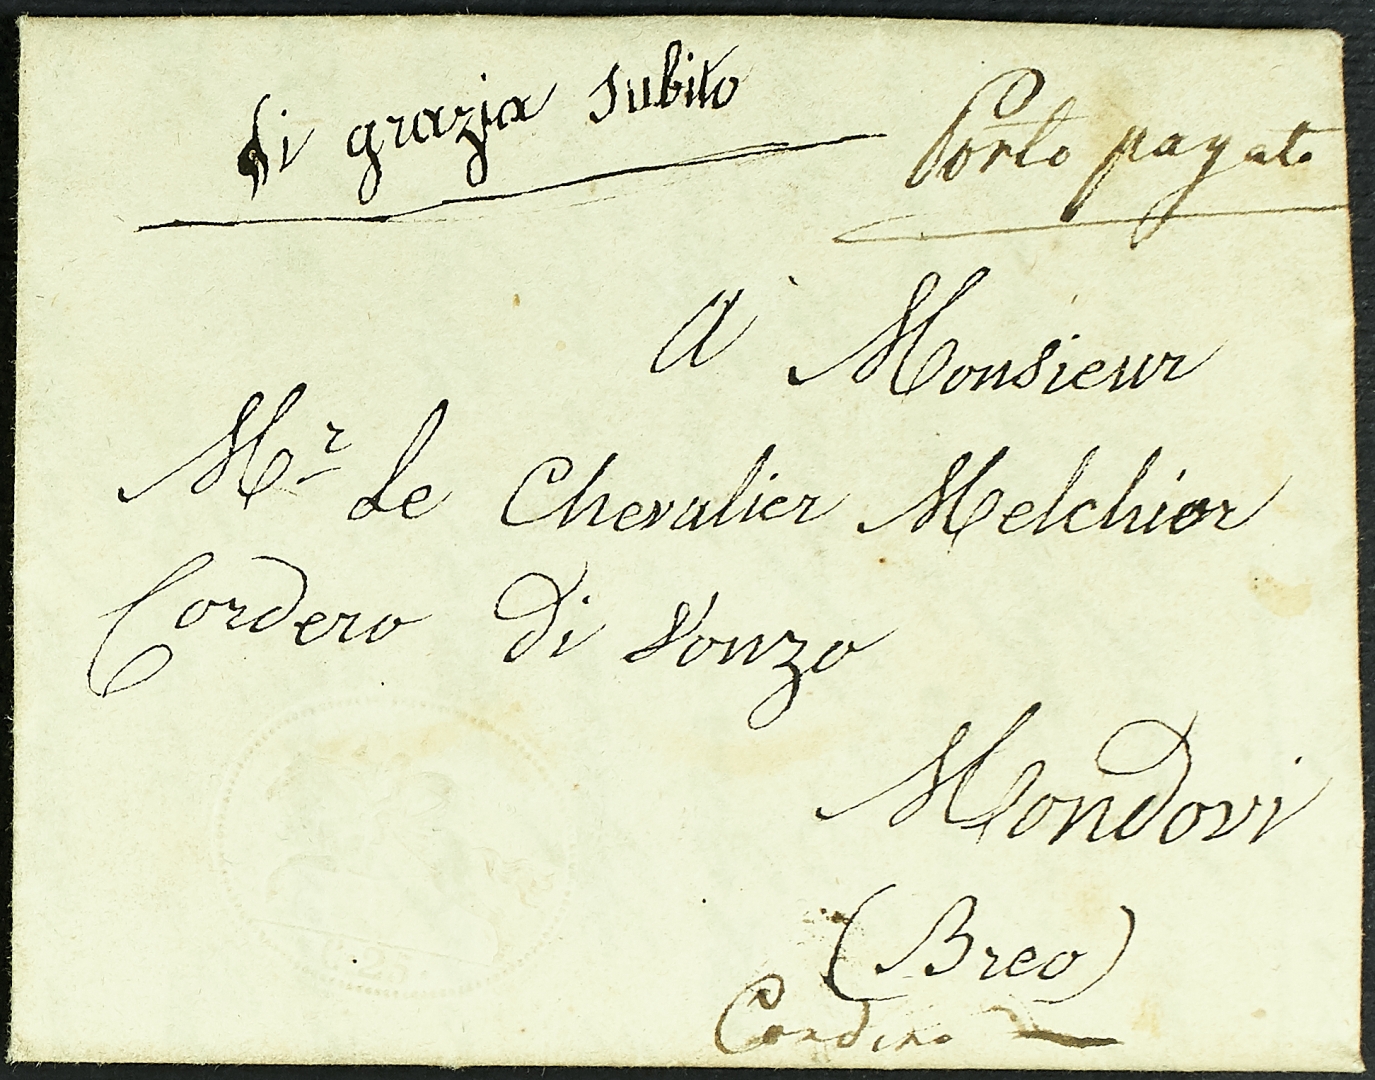 di grazia subito
Porto pagato
A Monsieur
Mr. le Chevalier Melchior
Cordero di Vonzo
Mondovi
(Breo)
0.25